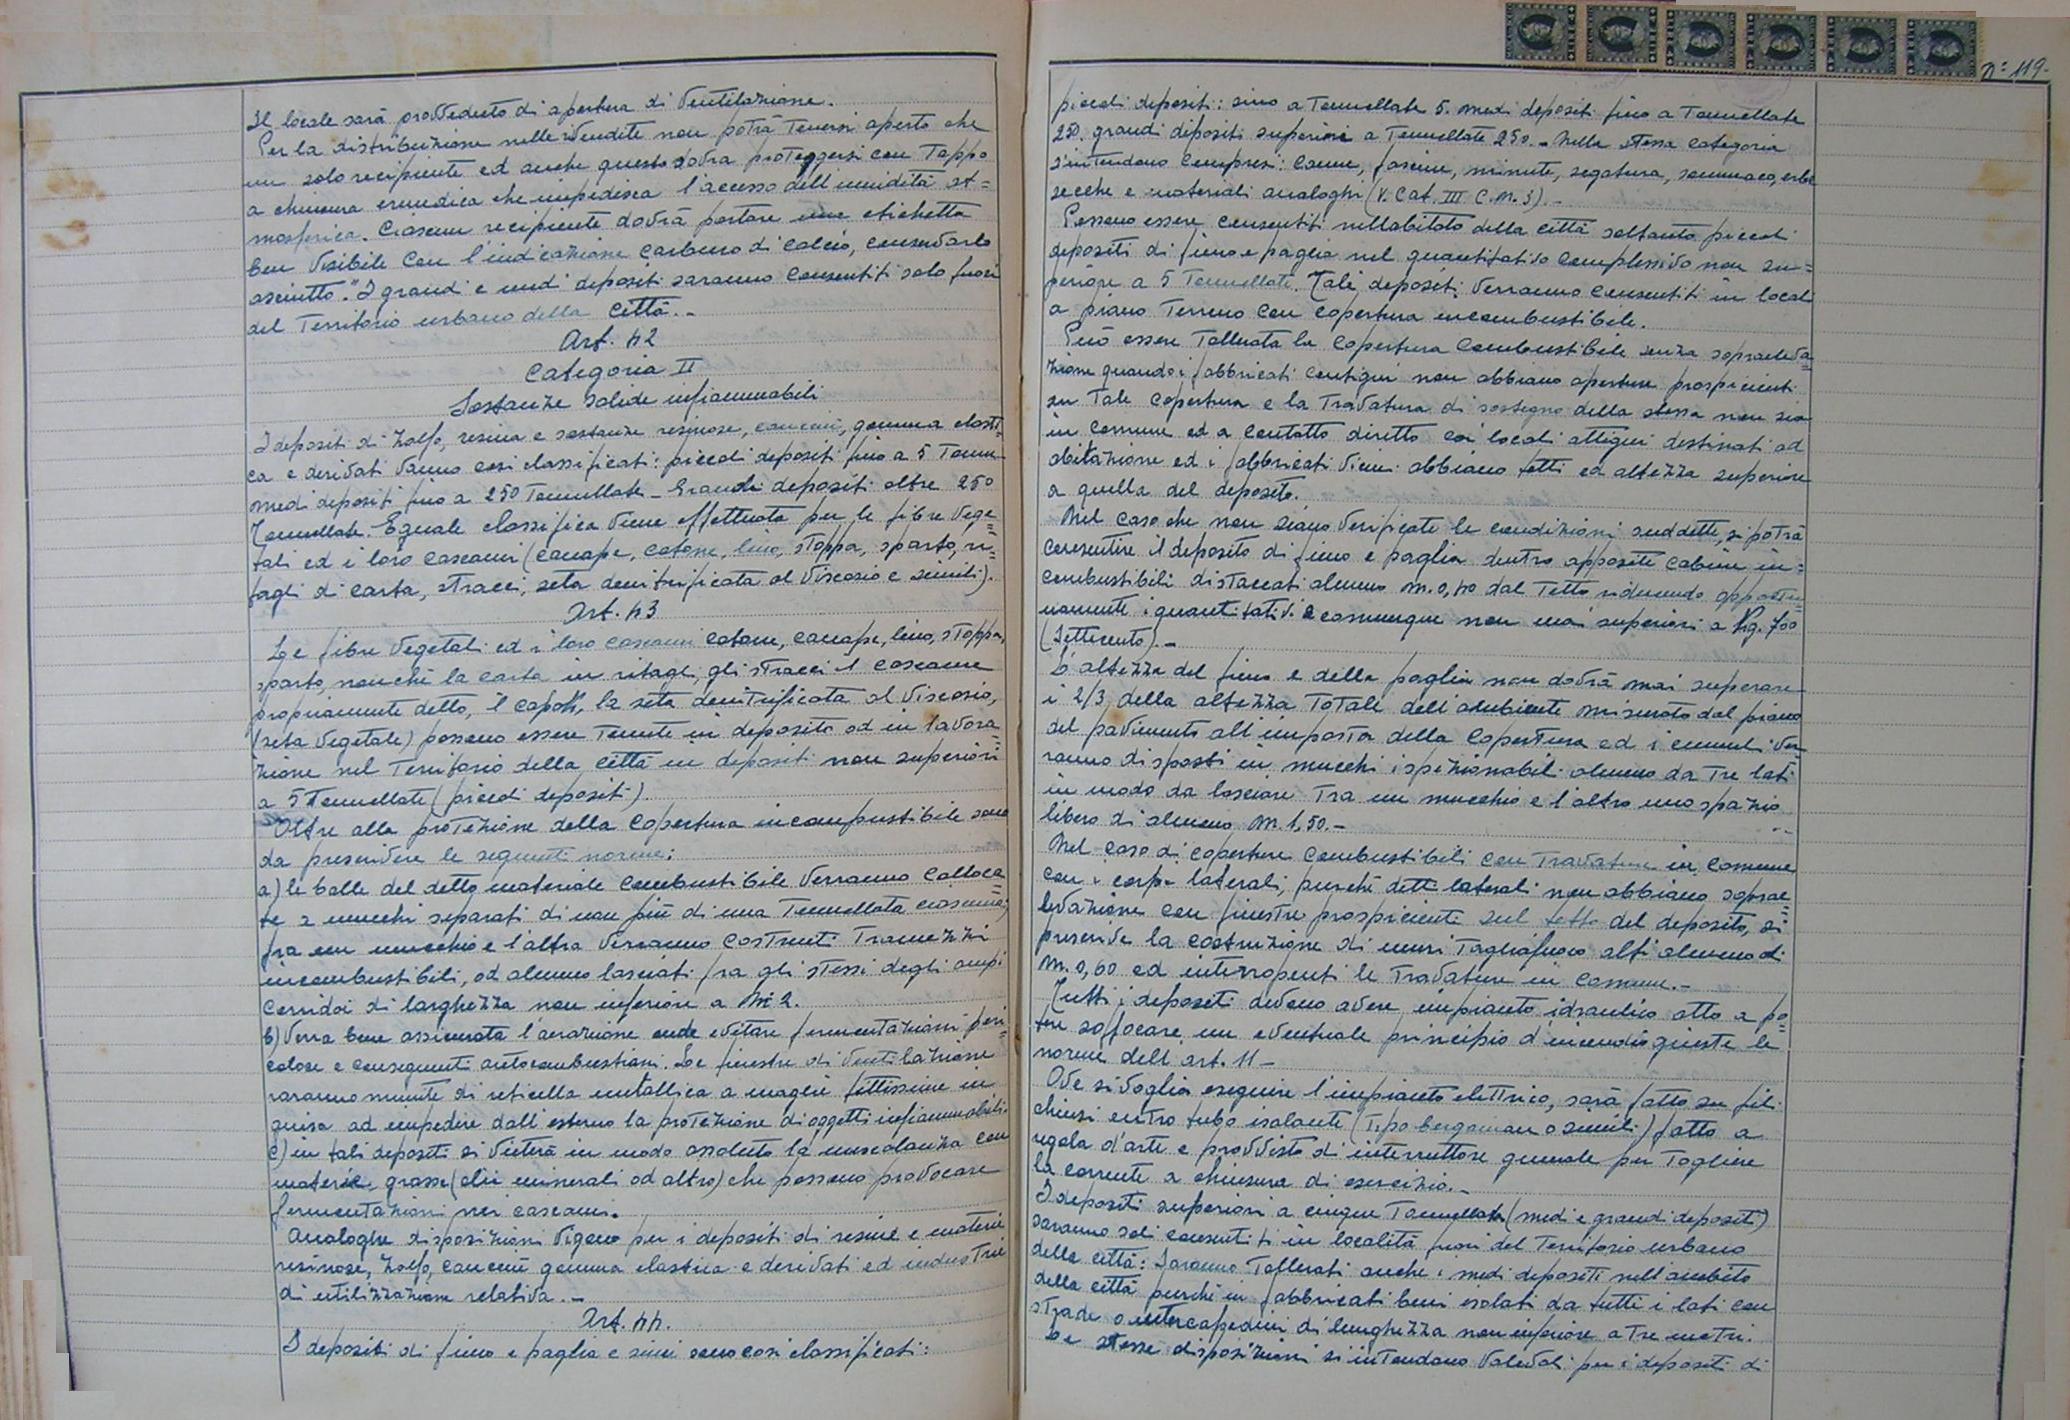 Il locale sarà provveduto di apertura di Ventilazione.
Per la distribuzione nelle Vendite non potrà tenersi aperto che
un solo recipiente ed anche questo dovra proteggersi con tappo
a chiusura ermedica che impedisca l'accesso dell'umidità at=
mosferica. Ciascun recipiente dovrà portare una etichetta
ben visibile con l'indicazione carburo di calcio, conservarlo
asciutto." I grandi e medi depositi saranno consentiti solo fuori
del Territorio urbano della città.-
Art. 42
Categoria II
Sostanze solide infiammabili
I depositi di Zolfo, resina e sostanze resinose, cauciù, gomma elasti=
ca e derivati vanno così classificati: piccoli depositi fino a 5 Tonn.
medi depositi fino a 250 Tonnellate - Grandi depositi oltre 250
Tonnellate. Eguale classifica viene effettuata per le fibre Vege=
tali ed i loro cascami (canape, cotone, lino, stoppa, sparto, ri=
tagli di carta, stracci, seta denitrificata al Viscosio e simili).
Art. 43
Le fibre Vegetali ed i loro cascami cotone, canape, lino, stoppa,
sparto, nonchè la carta in ritagli, gli stracci il cascame
propriamente detto, il capok, la seta denitrificata al Viscosio,
(seta vegetale) possono essere tenute in deposito od in lavora=
zione nel Territorio della città in depositi non superiori
a 5 Tonnellate (piccoli depositi)
Oltre alla protezione della copertura incompustibile sono
da prescrivere le seguenti norme:
a) le balle del detto materiale combustibile verranno colloca=
te a mucchi separati di non più di una Tonnellata ciascuno;
fra un mucchio e l'altro verranno costruiti Tramezzi
incombustibili, od almeno lasciati fra gli stessi degli ampi
corridoi di larghezza non inferiore a M. 2.
b) Verra bene assicurata l'aerazione onde evitare fermentazioni peri=
colose e conseguenti autocombustioni. Le finestre di Ventilazione
saranno munite di reticella metallica a maglie fittissime in
guisa ad impedire dall'esterno la protezione di oggetti infiammabili.
c) in tali depositi si vieterà in modo assoluto la mescolanza con
materie grasse (olii minerali od altro) che possano provocare
fermentazioni nei cascami.
Analoghe disposizioni Vigono per i depositi di resine e materie
resinose, Zolfo, cauciù gomma elastica e derivati ed industrie
di utilizzazione relativa.-
Art. 44.
I depositi di fieno e paglia e simi sono così classificati:
N° 119-
piccoli depositi: sino a Tonnellate 5. medi depositi fino a Tonnellate
250. grandi depositi superiori a Tonnellate 250.- Nella stessa categoria
s'intendono compresi: canne, fascine, minute, segatura, sommaco, erbe
secche e materiali analoghi (V. Cat. III C.M.I).-
Possono essere consentiti nell'abitato della città soltanto piccoli
depositi di fieno e paglia nel quantitativo complessivo non su=
periore a 5 Tonnellate. Tali depositi verranno consentiti in locali
a piano Terreno con copertura incombustibile.
Può essere Tollerata la copertura combustibile senza sopraeleva
zione quando i fabbricati contigui non abbiano aperture prospicienti
su Tale copertura e la Travatura di sostegno della stessa non sia
in comune ed a contatto diretto coi locali attigui destinati ad
abitazione ed i fabbricati vicini abbiano tetti ed altezza superiore
a quella del deposito.
Nel caso che non siano Verificate le condizioni suddette, si potrà
consentire il deposito di fieno e paglia dentro apposite cabine in=
combustibili distaccati almeno m. 0,40 dal Tetto riducendo opportu=
namente i quantitativi e comunque non mai superiori a Kg. 700
(Settecento).-
L'altezza del fieno e della paglia non dovrà mai superare
i 2/3 della altezza Totale dell'ambiente misurato dal piano
del pavimento all'imposta della copertura ed i cumuli ver=
ranno disposti in mucchi ispezionabili almeno da Tre lati
in modo da lasciare Tra un mucchio e l'altro uno spazio
libero di almeno M. 1,50.-
Nel caso di coperture combustibili con Travature in comune
con i corpi laterali, purchè detti laterali non abbiano soprae=
levazione con finestre prospicienti sul tetto del deposito, si
prescrive la costruzione di muri Tagliafuoco alti almeno di
M. 0,60 ed interropenti le Travature in comune.-
Tutti i depositi devono avere impianto idraulico atto a po=
tere soffocare un eventuale principio d'incendio giuste le
norme dell'art. 11-
Ove si voglia eseguire l'impianto elettrico, sarà fatto su fili
chiusi entro tubo isolante (Tipo bergaman o simili) fatto a
regola d'arte e provvisto d'interruttore generale per Togliere
la corrente a chiusura di esercizio.-
I depositi superiori a cinque Tonnellate (medi e grandi depositi)
saranno soli consentiti in località fuori del Territorio urbano
della città: Saranno Tollerati anche i medi depositi nell'ambito
della città purchè in fabbricati beni isolati da tutti i lati con
strade o intercapedini di lunghezza non inferiore a Tre metri.
Le stesse disposizioni si intendono Valevoli per i depositi di